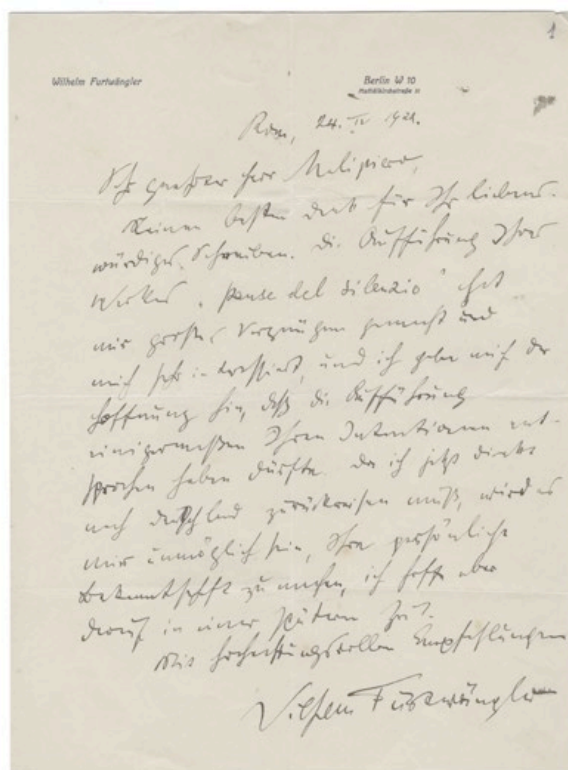 1
Wilhelm Furtwängler
Berlin W 10
Rom, 24. IV 192
Sehr geehrter Herr Malipiero,
Meinen besten Dank für Ihr liebens-
würdiges Schreiben. Die Aufführung Ihres
Werkes „Pause del Silenzio" hat
mir großes Vergnügen gemacht und
mich sehr interessiert, und ich gebe mich der
Hoffnung hin, daß die Aufführung
einigermaßen Ihren Intentionen ent-
sprochen haben dürfte. Da ich jetzt direkt
nach Deutschland zurückreisen muß, wird es
mir unmöglich sein, Ihre persönliche
Bekanntschaft zu machen, ich hoffe aber
darauf in einer späteren Zeit.
Mit hochachtungsvollen Empfehlungen
Wilhelm Furtwängler